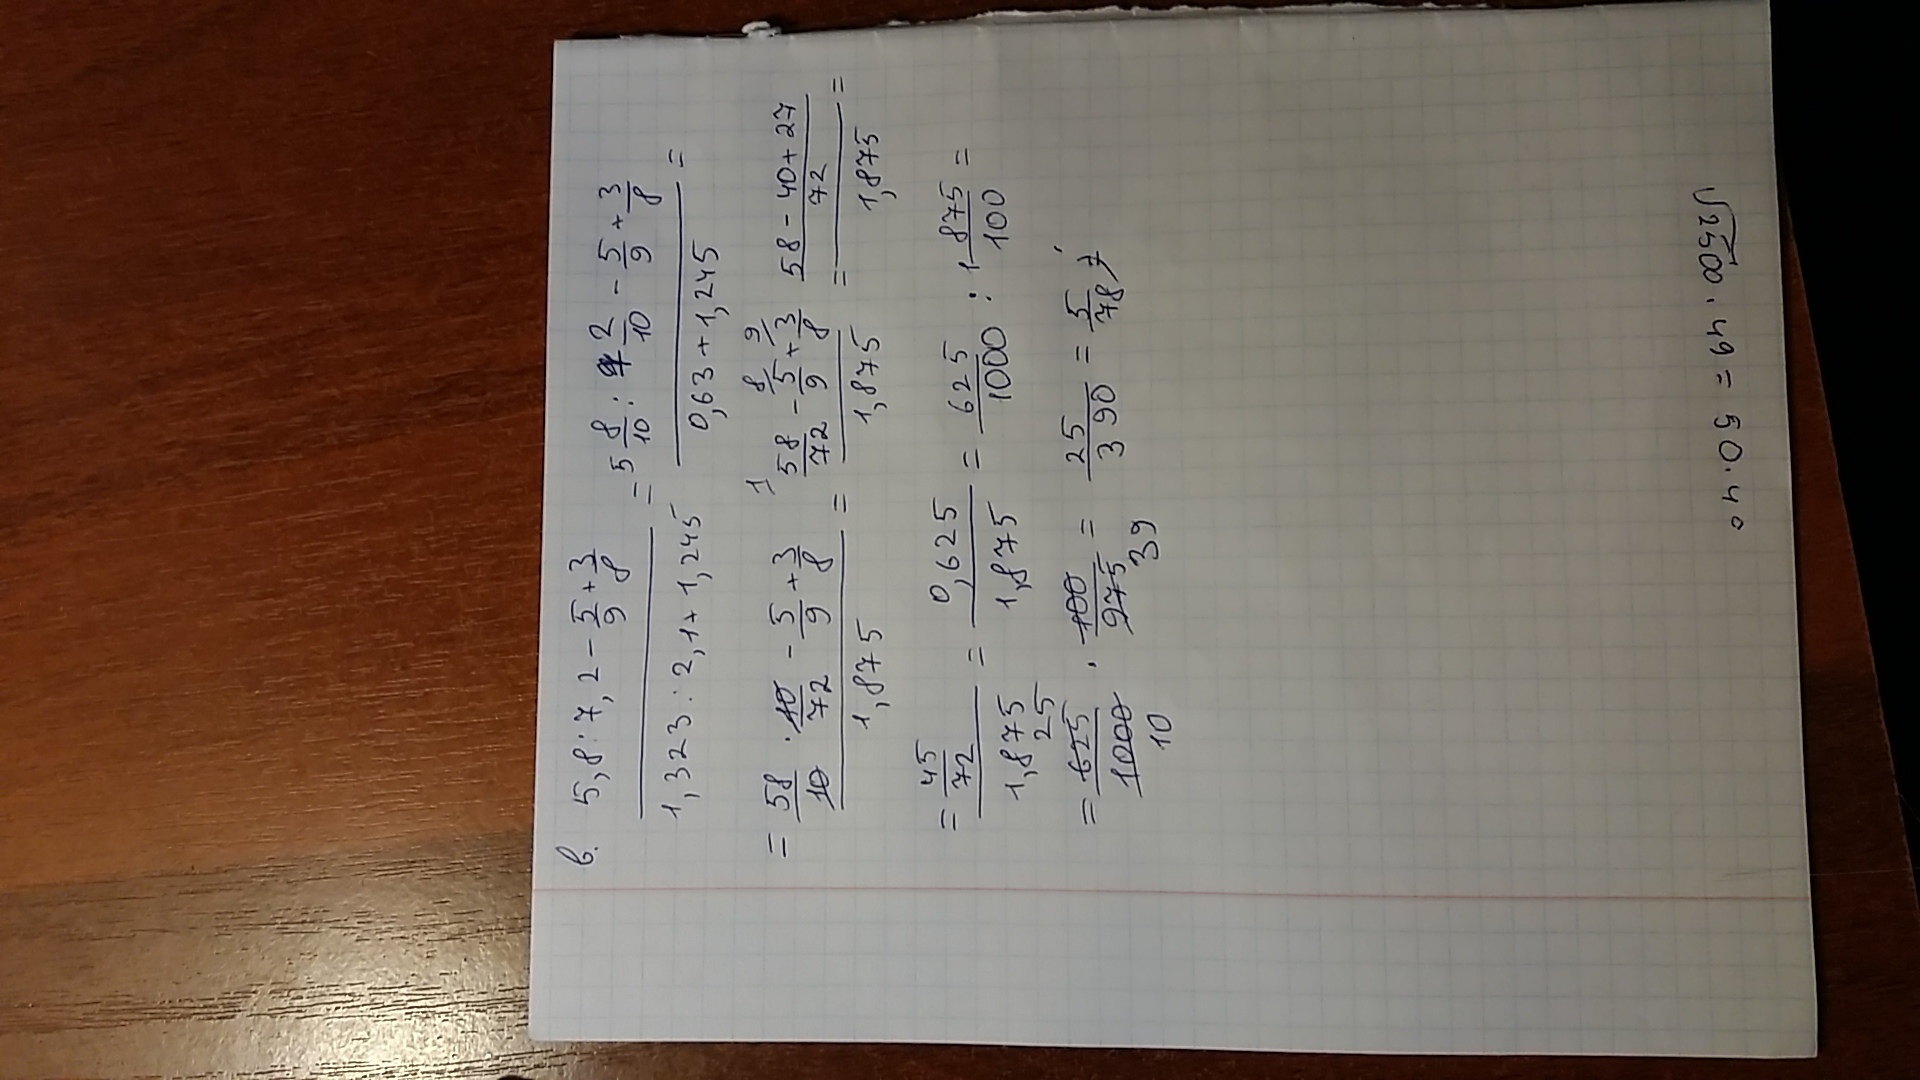 в. 5,8:7,2-5/9+3/8 / 1,323:2,1+1,245 = 5 8/10 : 7 2/10 - 5/9 + 3/8 / 0,63+1,245 =
= 58/10 · 10/72 - 5/9 + 3/8 / 1,875 = 1) 58/72 - 8) 5/9 + 9) 3/8 / 1,875 = 58-40+27/72 / 1,875 =
= 45/72 / 1,875 = 0,625/1,875 = 625/1000 : 1 875/100 =
= 625 25/1000 10 · 100/975 39 = 25/390 = 5/78
√2500 · 49 = 50 · 4